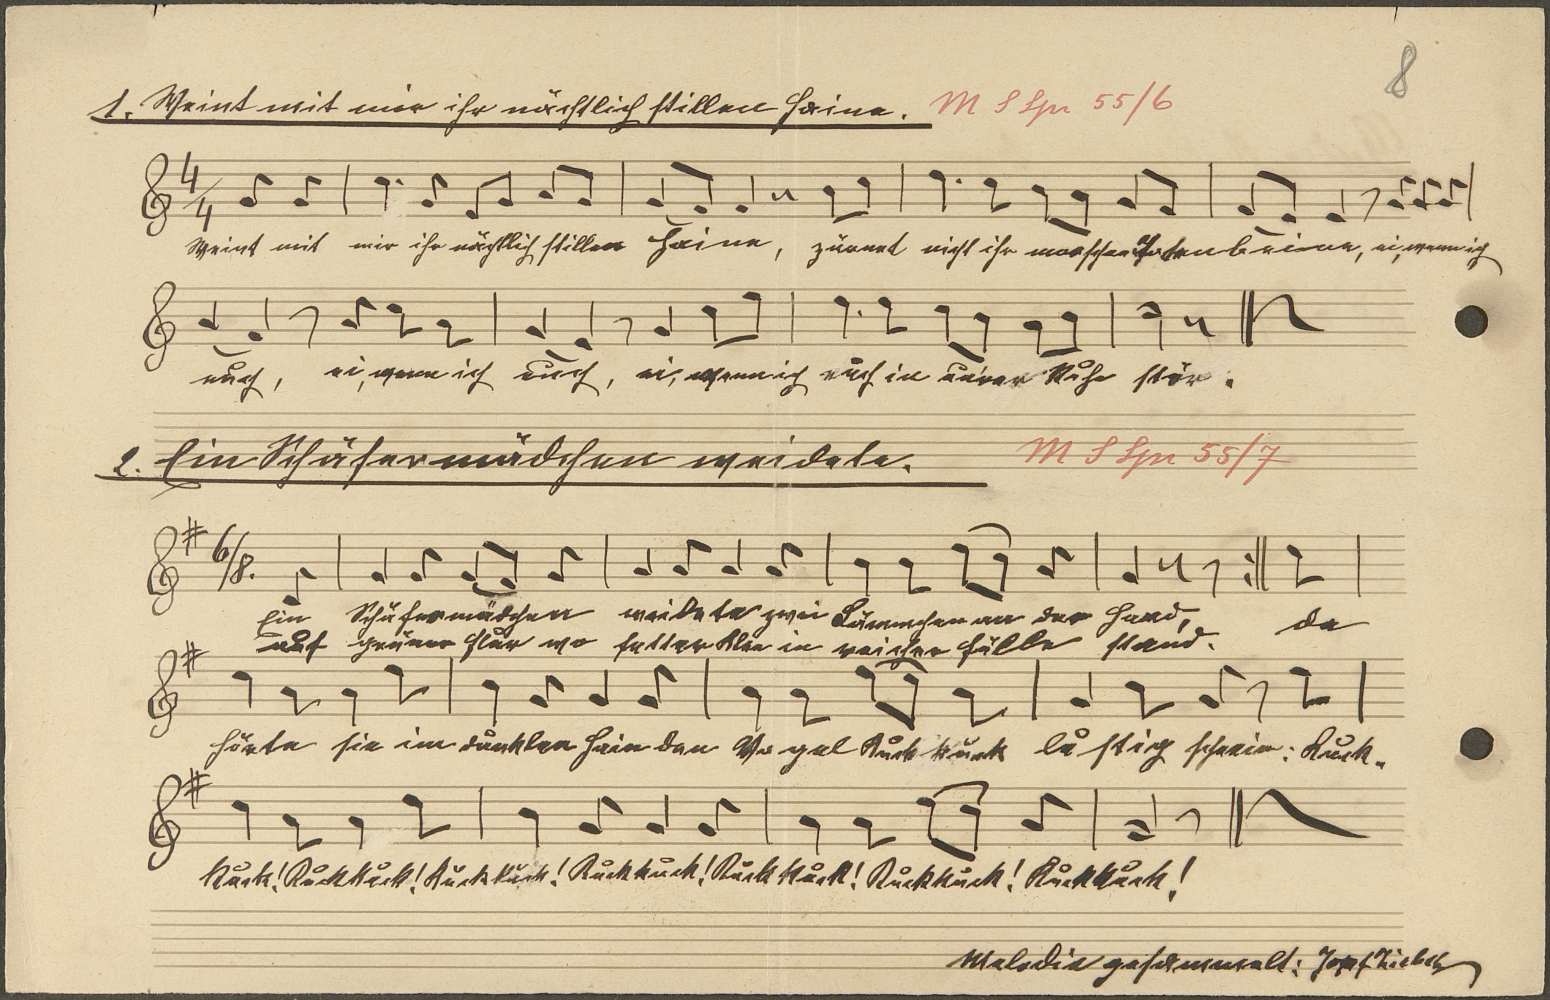 8
1. Weint mit mir ihr nächtlich stillen Haine. M S Spr 55/6
4/4
Weint mit mir ihr nächtlich stillen Haine, zürnet nicht ihr morschen Totenbeine, ei, wenn ich
euch, ei, wenn ich euch, ei, wenn ich euch in eurer Ruhe stör.
2. Ein Schäfermädchen weidete. M S Spr 55/7
6/8.
Ein Schäfermädchen weidete zwei Lämmchen an der Hand, da
auf grüner Flur wo fetter Klee in reicher Fülle stand.
hörte sie im dunklen Hain den Vogel Kuckkuck lustig schrein: Kuck-
kuck! Kuckkuck! Kuckkuck! Kuckkuck! Kuckkuck! Kuckkuck! Kuckkuck!
Melodie gesammelt: Josef